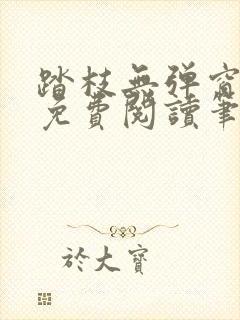 踏枝無弹窗
免費閱讀筆
於大寶